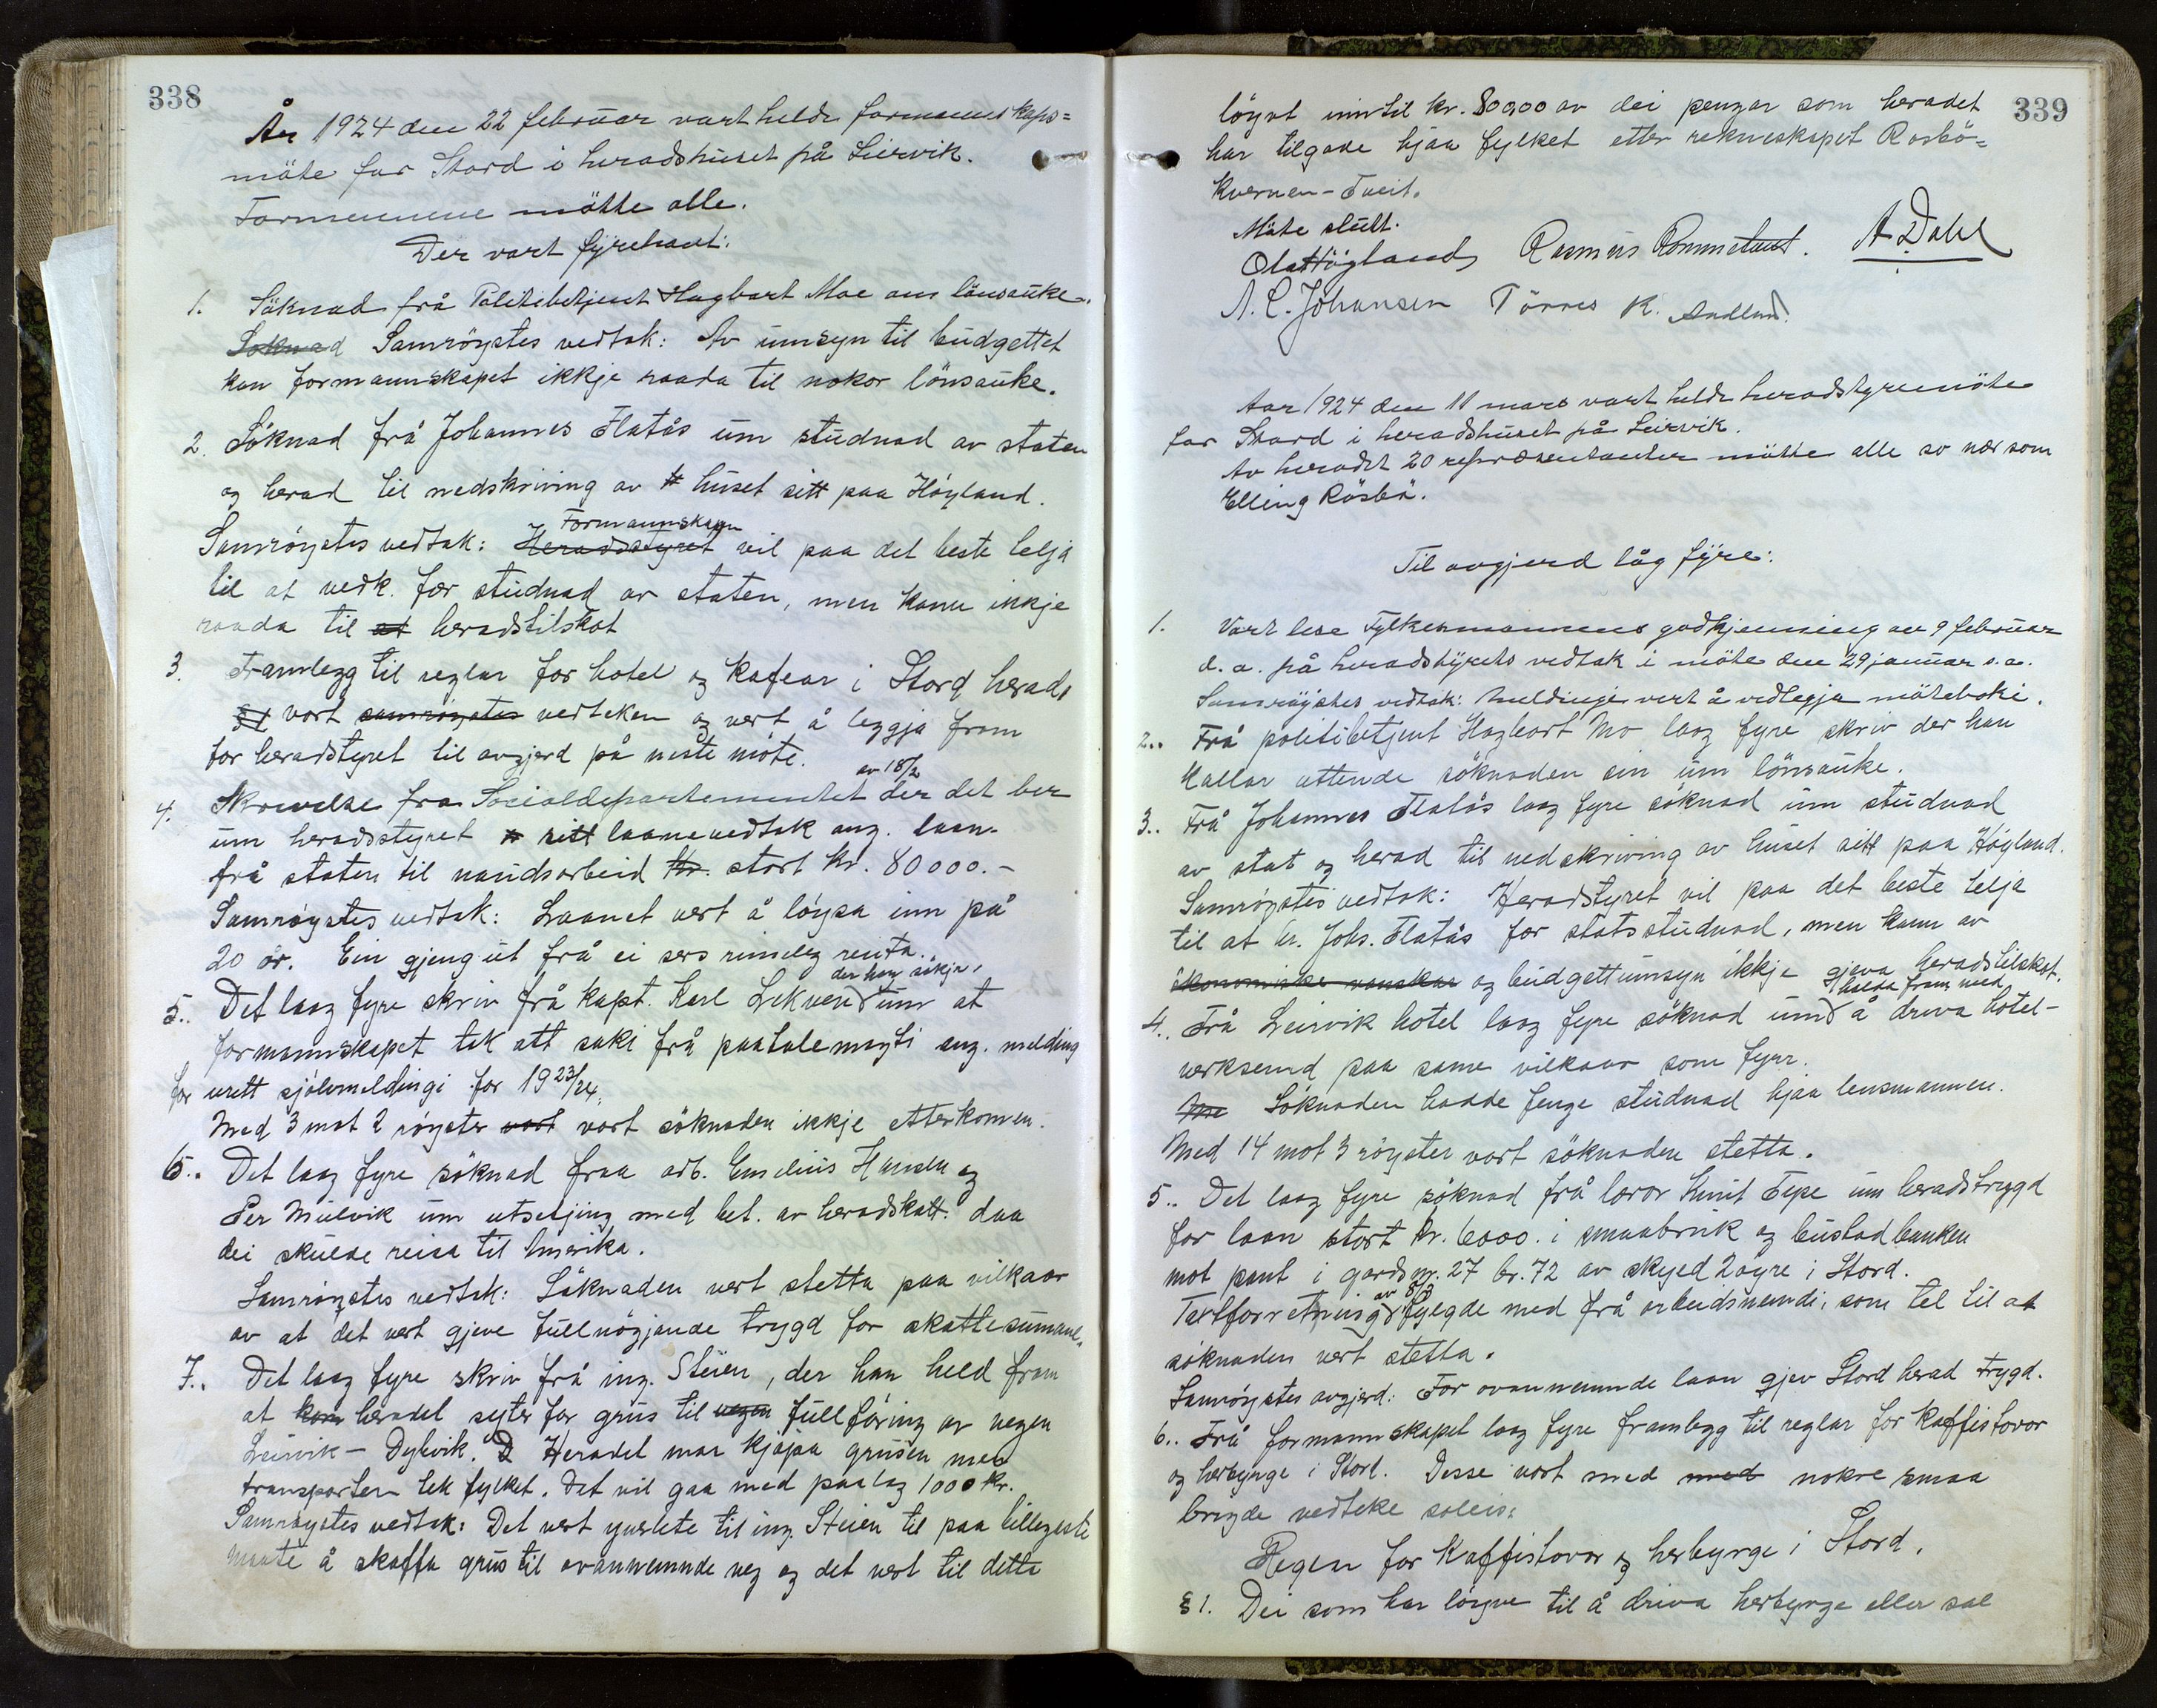 338
År 1924 den 22 februar vart helde formannskaps=
möte for Stord i heradshuset på Leirvik.
Formennene mötte alle.
Der vart fyrehavt:
1. Söknad frå Politibetjent Hagbart Moe om lönsauke.
Soknad Samröystes vedtak: Av umsyn til budgettet
kan formannskapet ikkje raada til nokor lönsauke.
2. Söknad frå Johannes Flatås um studnad av staten
og herad til nedskriving av huset sitt paa Höyland.
Formannskapu
Samröystes vedtak: Heradsstyret vil paa det beste telja
til at vedk. fær studnad av staten, men kann ikkje
raada til at heradstilskot
3. Framlegg til reglar for hotel og kafear i Stord herad
vart samröystes vedteken og vert å leggja fram
for heradstyret til avgjerd på neste möte.
av 18/2
4. Skrivelse fra Socialdepartementet der det ber
um heradsstyret sitt laanevedtak ang. laan
frå staten til naudsarbeid kr. stort kr. 80000.-
Samröystes vedtak: Laanet vert å löysa inn på
20 år. Ein gjeng ut frå ei sers rimeleg renta.
der han sökjer
5.. Det laag fyre skriv frå kapt. Karl Lekven um at
formannskapet tek att saki frå paatalemagti ang. melding
for urett sjölvmeldingi for 1923/24.
Med 3 mot 2 röyster vart vart söknaden ikkje etterkomen.
6.. Det laag fyre söknad fraa arb. Emelius Hansen og
Per Mulvik um utsetjing med bet. av heradskatt daa
dei skulde reisa til Amerika.
Samröystes vedtak: Söknaden vert stetta paa vilkaar
av at det vert gjeve fullnögjande trygd for skattesumane.
7.. Det laag fyre skriv frå ing. Steien, der han held fram
at kom heradet syter for grus til vegen fullföring av vegen
Leirvik - Dyvik. D Heradet maa kjöpa grusen med
transporten tek fylket. Det vil gaa med paalag 1000 kr.
Samröystes vedtak: Det vert yverlete til ing. Steien til paa billegaste
maate å skaffa grus til ovannemnde veg og det vert til dette
339
löyvt inntil kr. 800,00 av dei pengar som heradet
har tilgode hjaa fylket etter rekneskapet Rosbö-
kvernen - Tveit.
Möte slutt.
Ola Höyland Rasmus Rommetveit. A Dahl
A. C. Johansen Törres K. Andland.
Aar 1924 den 11 mars vart helde heradstyremöte
for Stord i heradshuset på Leirvik.
Av heradet 20 repræsentanter mötte alle so nær som
Elling Rösbö.
Til avgjerd låg fyre:
1. Vart lese Fylkesmannens godkjenning av 9 februar
d. a. på heradstyrets vedtak i möte den 29 januar s.a.
Samröystes vedtak: Meldingi vert å vedleggja möteboki.
2.. Frå politibetjent Hagbart Mo laag fyre skriv der han
kallar attende söknaden sin um lönsauke.
3.. Frå Johannes Flatås laag fyre söknad um studnad
av stat og herad til nedskriving av huset sitt paa Höyland.
Samröystes vedtak: Heradstyret vil paa det beste telja
til at hr. Johs. Flatås fær statsstudnad, men kann av
ökonomiske vanskar og budgettumsyn ikkje gjeva heradstilskot.
halda fram med
4.. Frå Leirvik hotel laag fyre söknad um å driva hotel-
verksemd paa same vilkaar som fyrr.
Me Söknaden hadde fenge studnad hjaa lensmannen.
Med 14 mot 3 röyster vart söknaden stetta.
5.. Det laag fyre söknad frå lærar Knut Eepe um heradstrygd
for laan stort kr. 6000. i smaabruk og bustadbanken
mot pant i gardsnr. 27 br. 72 av skyld 2 öyre i Stord.
av 8/3
Takstforretning fylgde med frå arbeidsnemndi, som tel til at
söknaden vert stetta.
Samröystes avgjerd: For ovannemnde laan gjev Stord herad trygd.
6.. Frå formannskapet laag fyre framlegg til reglar for kaffistovor
og herbyrge i Stord. Desse vart med med nokre smaa
brigde vedteke soleis:
Reglar for Kaffistovor og herbyrge i Stord.
§ 1. Dei som har löyve til å driva herbyrge eller sal